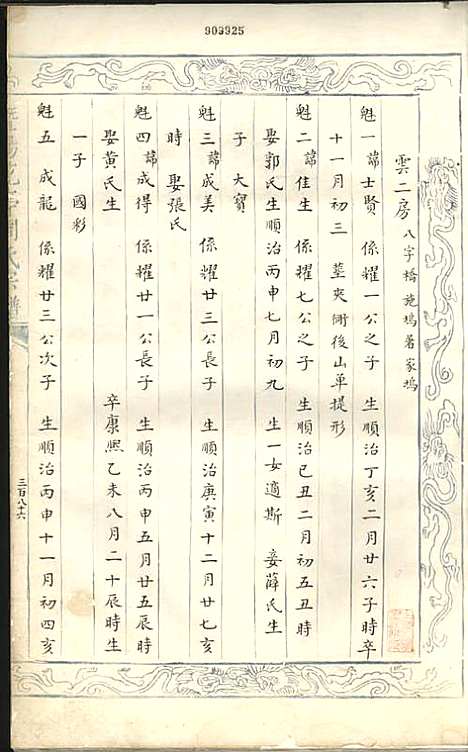 903925
雲二房 八字橋
魁一諱士賢 係耀一公之子 生順治丁亥二月廿六子時卒
十一月初三 墓夾衕後山单提形
魁二諱佳生 係耀七公之子 生順治己丑二月初五丑時
娶郭氏生順治丙申七月初九 生一女適斯 妾薛氏生
子 大寶
魁三諱成美 係耀廿二公長子 生順治庚寅十二月廿七亥
時 娶張氏
魁四諱成得 係耀廿一公長子 生順治丙申五月廿五辰時
娶黄氏生 卒康熙乙未八月二十辰時生
一子 國彩
魁五 成龍 係耀廿三公次子 生順治丙申十一月初四亥
三百八十六